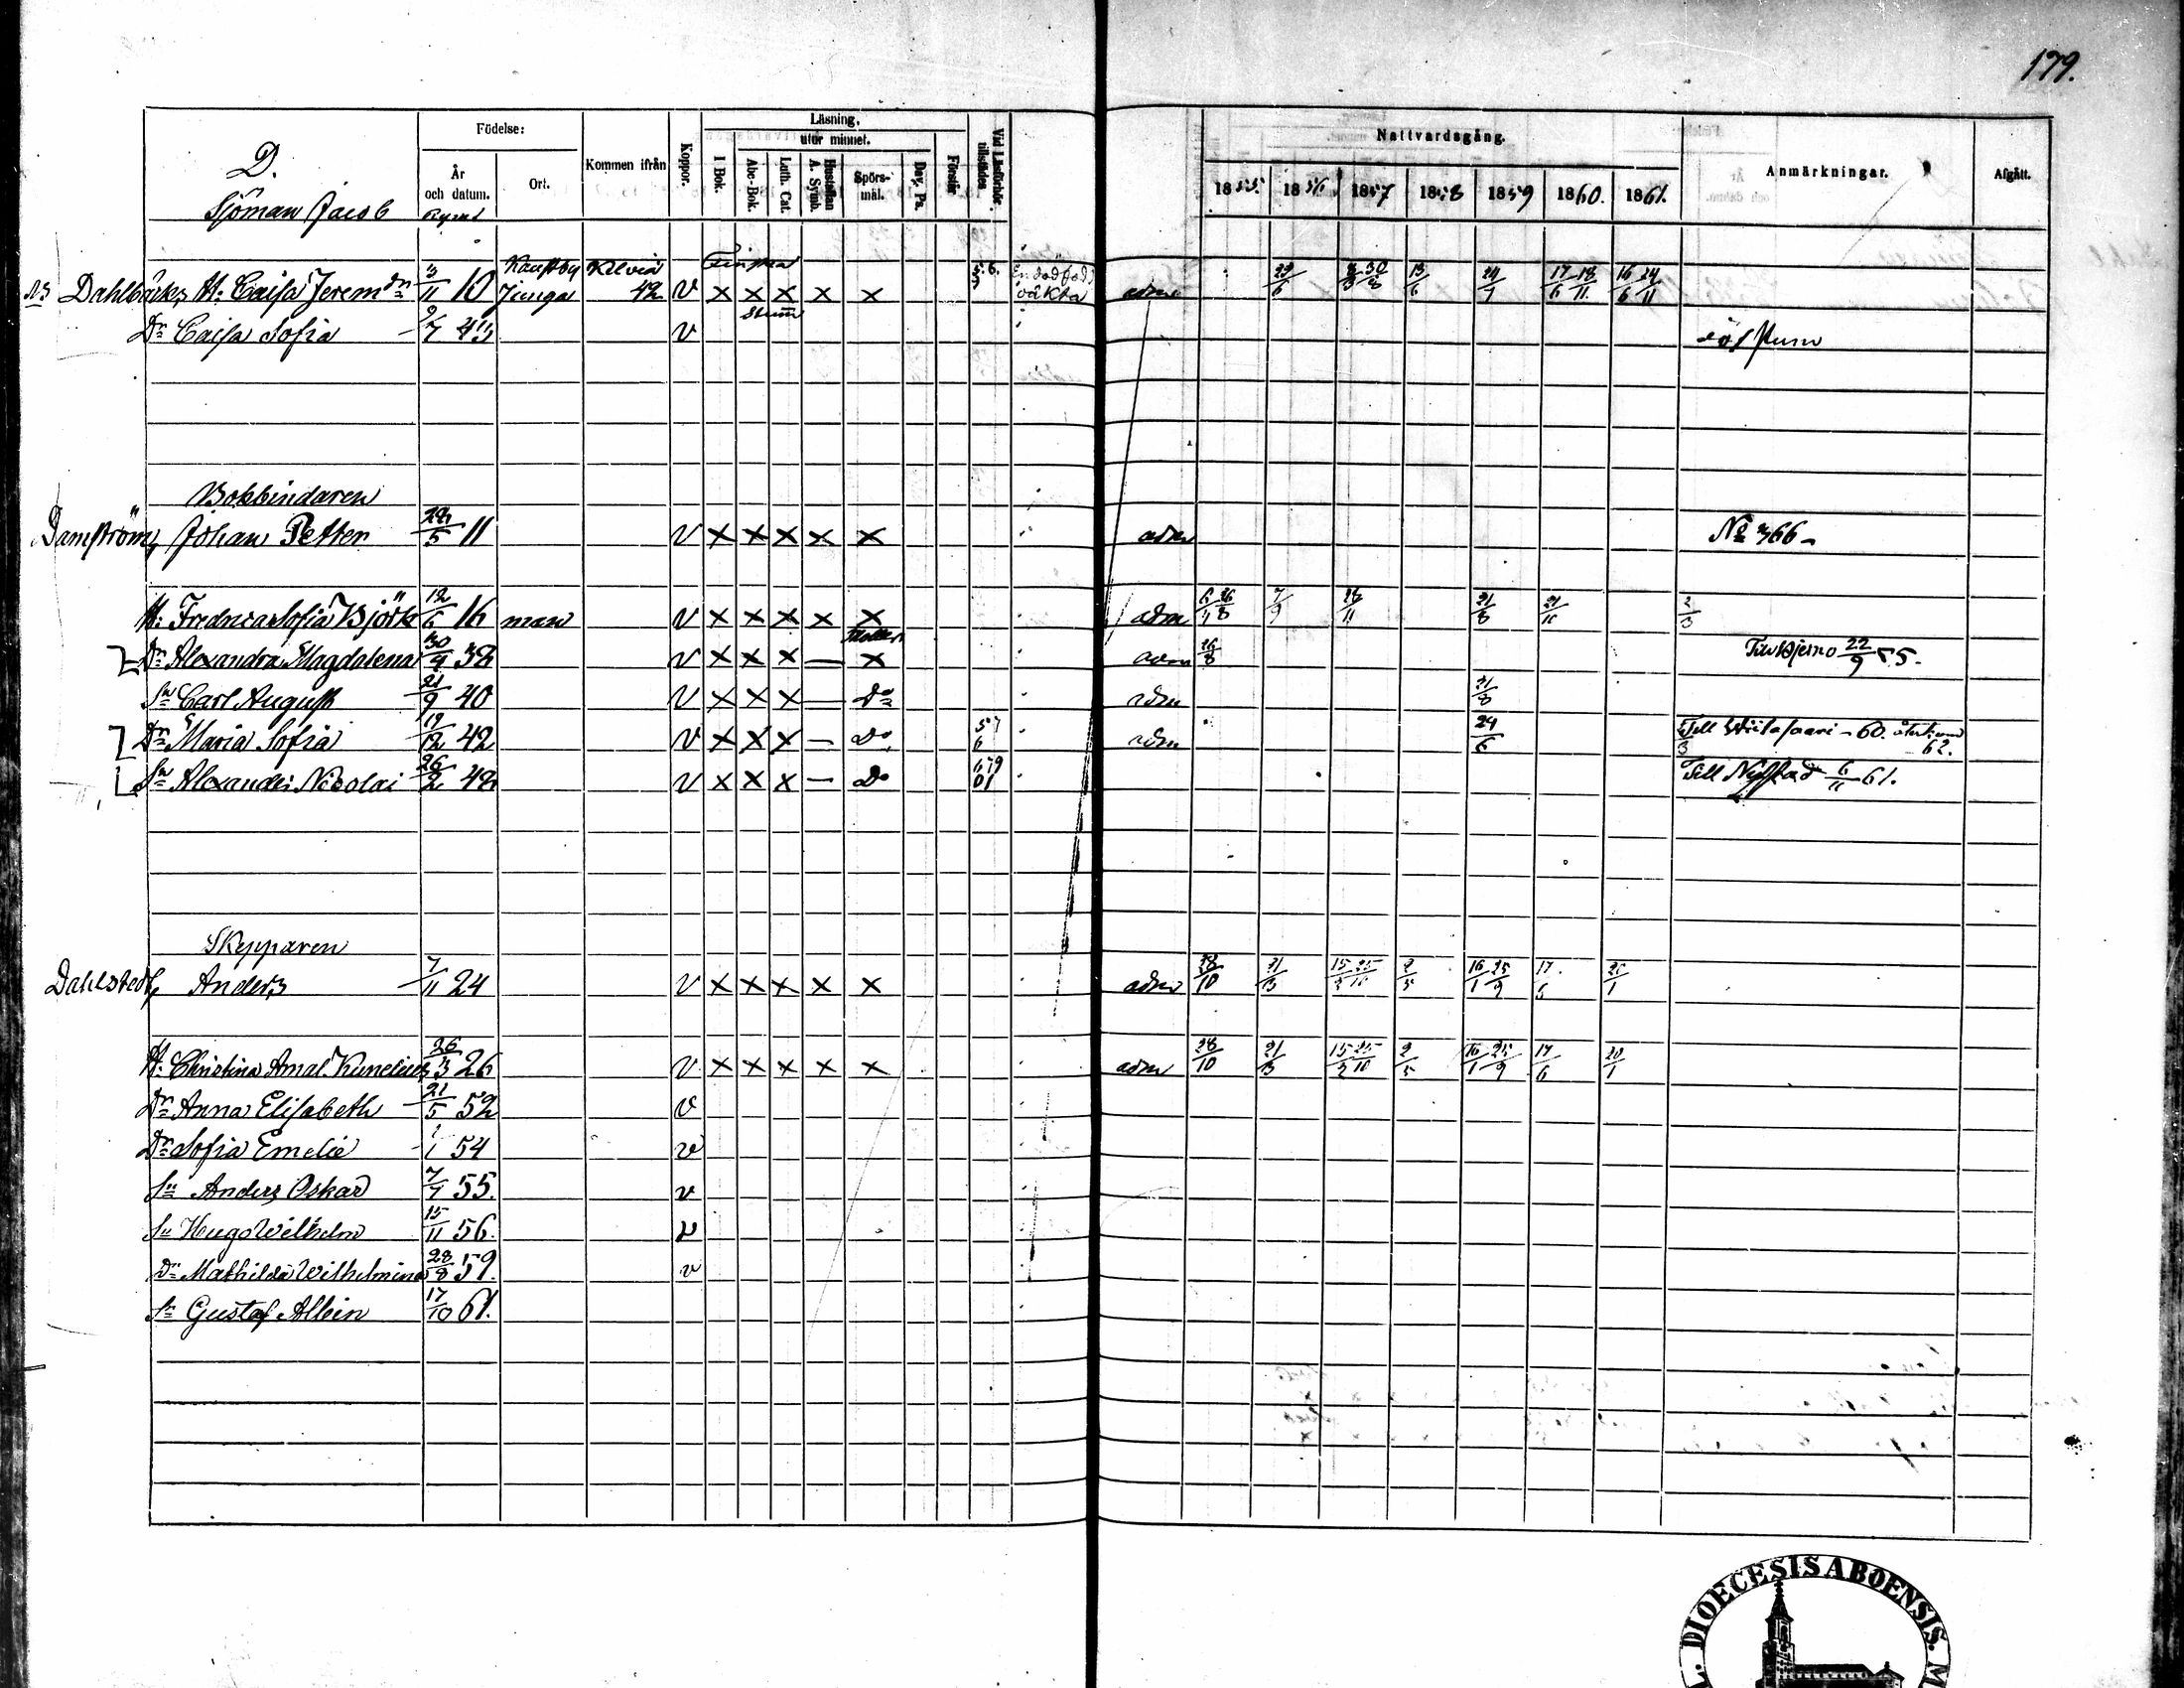 179.
D.
Födelse:
År och datum.
Ort.
Kommen ifrån
Koppor.
Läsning.
utur minnet.
I Bok.
Abc-Bok.
Luth. Cat.
Hustaflan A. Symb.
Spörs-mål.
Dav. Ps.
Förstår
Vid Läsförhör tillstädes.
Nattvardsgång.
1855. 1856 1857 1858 1859 1860. 1861.
Anmärkningar.
Afgått.
Sjöman Jacob
Kaustby Kelviå Finska
Dahlbacks H: Caisa Jerem dr 11 10 Junga 42 v × × × × × oäkta adm 23/6 13/6 17/6 18/11 16/6 24/11
Stum
Dr Caisa Sofia 9/7 43 v döfstum
Bokbindaren
Damström, Johan Petter 5 11 v × × × × × adm No 366
H: Fredrica Sofia Björk 12/6 16 man v × × × × × adm 6/1 26/8 7/9 28/11 21/8 21/10 2/3
Dr Alexandra Magdalena 30/4 32 v × × × — × adm 26/8 Till Bjerno 22/9 55.
Sn Carl August 21/9 40 v × × × — Do adm 21/8
Dr Maria Sofia 19/12 42 v × × × — Do 57 6 adm 24/6 Till Wiitasaari - 60. återkom 62.
Sn Alexander Nicolai 26/2 48 v × × × — Do Till Nystad 6/11 61.
Skepparen
Dahlstedt, Anders 7/11 24 v × × × × × adm 28/10 21/3 15/2 25/10 2/5 16/1 25/9 17/6 20/1
H: Christina Amal. Kunelius 26/3 26 v × × × × × adm 28/10 21/3 15/2 25/10 2/5 16/1 25/9 17/6 20/1
Dr Anna Elisabeth 21/5 52 v
Dr Sofia Emelie 1/1 54 v
Sn Anders Oskar 7/7 55. v
Sn Hugo Wilhelm 15/11 56. v
Dr Mathilda Wilhelmina 28/8 59. v
Sn Gustaf Albin 17/10 61.
DIOECESIS ABOENSIS. M